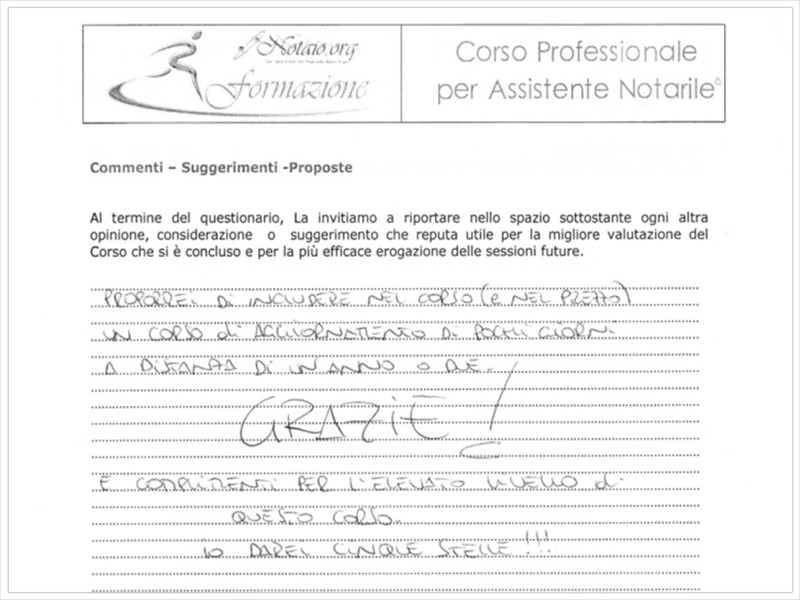 Notaio.org
Formazione
Corso Professionale
per Assistente Notarile©
Commenti – Suggerimenti -Proposte
Al termine del questionario, La invitiamo a riportare nello spazio sottostante ogni altra
opinione, considerazione o suggerimento che reputa utile per la migliore valutazione del
Corso che si è concluso e per la più efficace erogazione delle sessioni future.
PROPORREI DI INCLUDERE NEL CORSO (e NEL PREZZO)
UN CORSO di AGGIORNAMENTO DI POCHI GIORNI
A DISTANZA DI UN ANNO O DUE.
GRAZIE!
E COMPLIMENTI PER L'ELEVATO LIVELLO di
QUESTO CORSO.
io DAREI CINQUE STELLE!!!